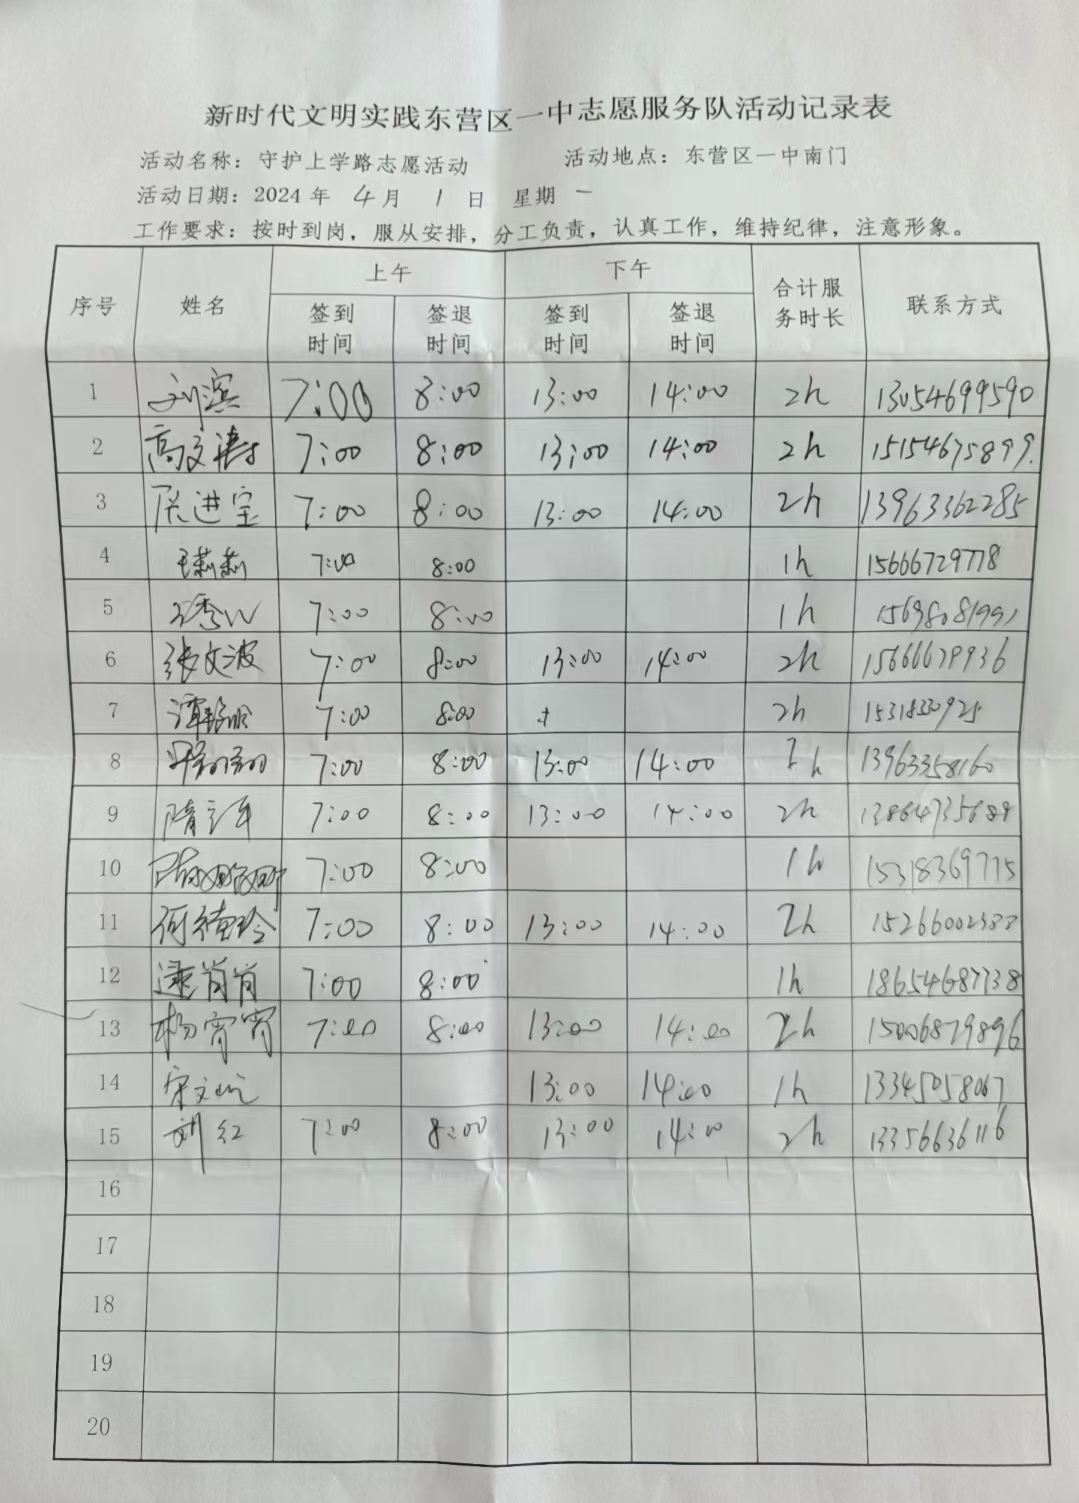 新时代文明实践东营区一中志愿服务队活动记录表
活动名称：守护上学路志愿活动 活动地点：东营区一中南门
活动日期：2024年 4月 1日 星期一
工作要求：按时到岗，服从安排，分工负责，认真工作，维持纪律，注意形象。
序号 姓名 上午 下午 合计服务时长 联系方式
签到时间 签退时间 签到时间 签退时间
1 刘滨 7:00 8:00 13:00 14:00 2h 13054699590
2 高文涛 7:00 8:00 13:00 14:00 2h 15154675899
3 进宝 7:00 8:00 13:00 14:00 2h 13963362285
4 王莉莉 7:00 8:00 1h 15666729778
5 7:00 8:00 1h
6 张文波 7:00 8:00 13:00 14:00 2h
7 谭 7:00 8:00 2h
8 7:00 8:00 13:00 14:00 h 13963358160
9 隋 7:00 8:00 13:00 14:00 2h 13864735688
10 7:00 8:00 1h 15318369775
11 何 玲 7:00 8:00 13:00 14:00 2h 15266002388
12 逯肖肖 7:00 8:00 1h 18654687738
13 杨宵宵 7:00 8:00 13:00 14:00 2h 15006879896
14 宋文 13:00 14:00 1h 13345058067
15 刘红 7:00 8:00 13:00 14:00 2h 13356636116
16
17
18
19
20